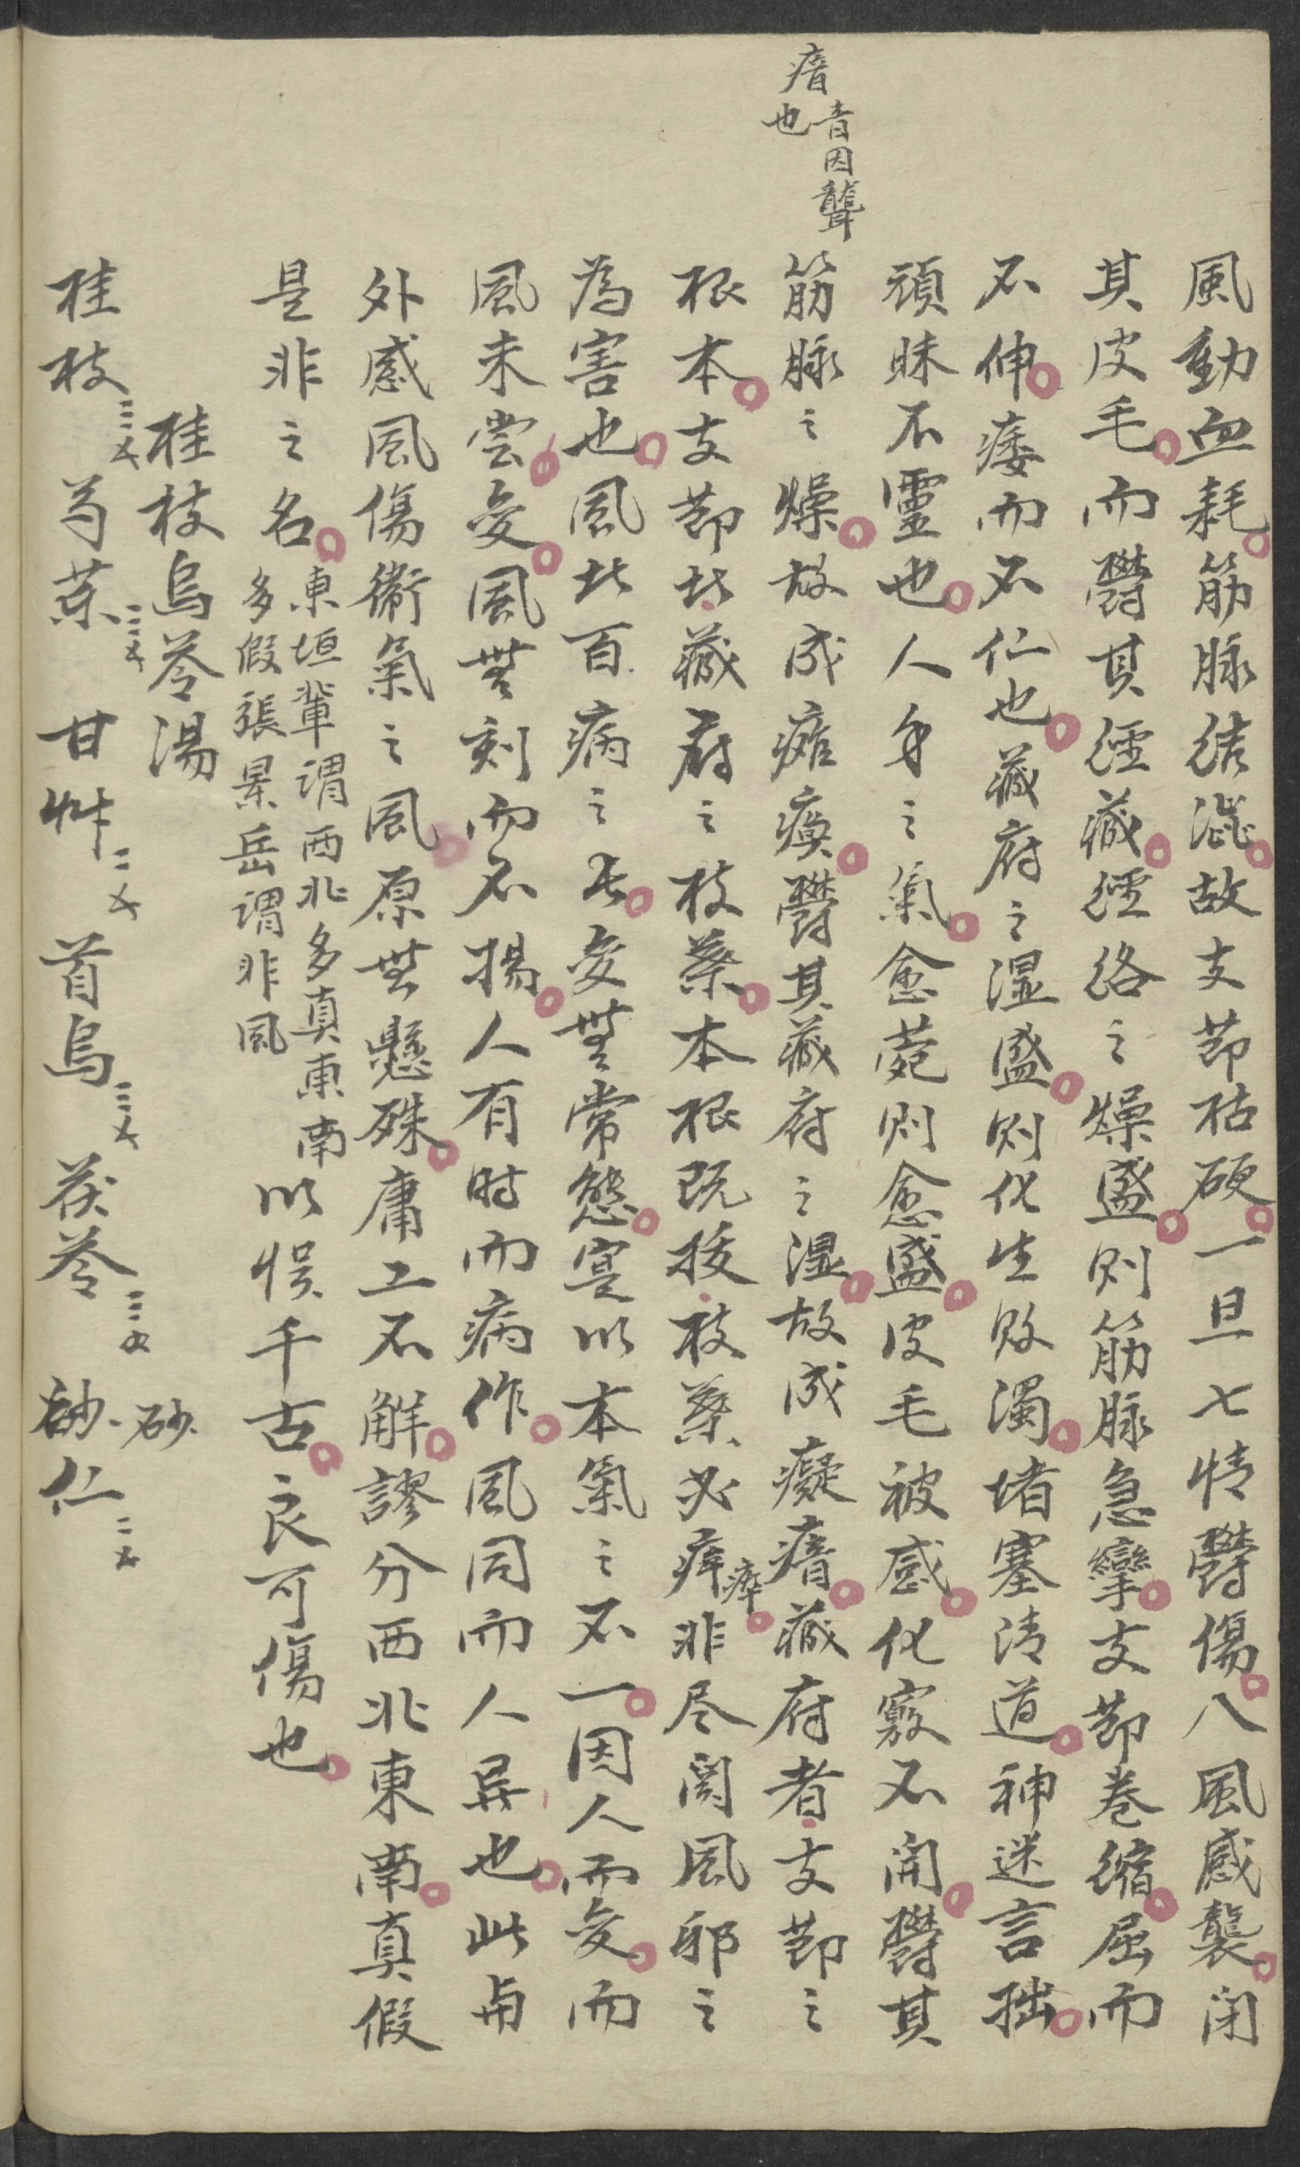 風動血耗筋脉結澁故支節枯硬一旦七情鬱傷八風感襲闭
其皮毛而鬱其經藏經絡之燥盛則筋脉急攣支節卷縮屈而
不伸痿而不仁也藏府之湿盛則化生敗濁堵塞清道神迷言拙
頑昧不靈也人身之氣愈菀則愈盛皮毛被感化竅不開鬱其
瘖音因聾也
筋脉之燥故成癱瘓鬱其藏府之湿故成癡瘖藏府者支節之
根本支節北藏府之枝葉本根既拔枝葉必瘁瘁非尽関風邪之
為害也風北百病之長変無常態寔以本氣之不一因人而変而
風未尝変風無刻而不揚人有时而病作風同而人異也此与
外感風傷衛氣之風原無懸殊庸工不解謬分西北東南真假
是非之名東垣輩謂西北多真東南多假張景岳謂非風以悮千古良可傷也
桂枝烏苓湯
桂枝三文芍薬三文甘艸二文首烏三文茯苓三文砂仁二文
砂